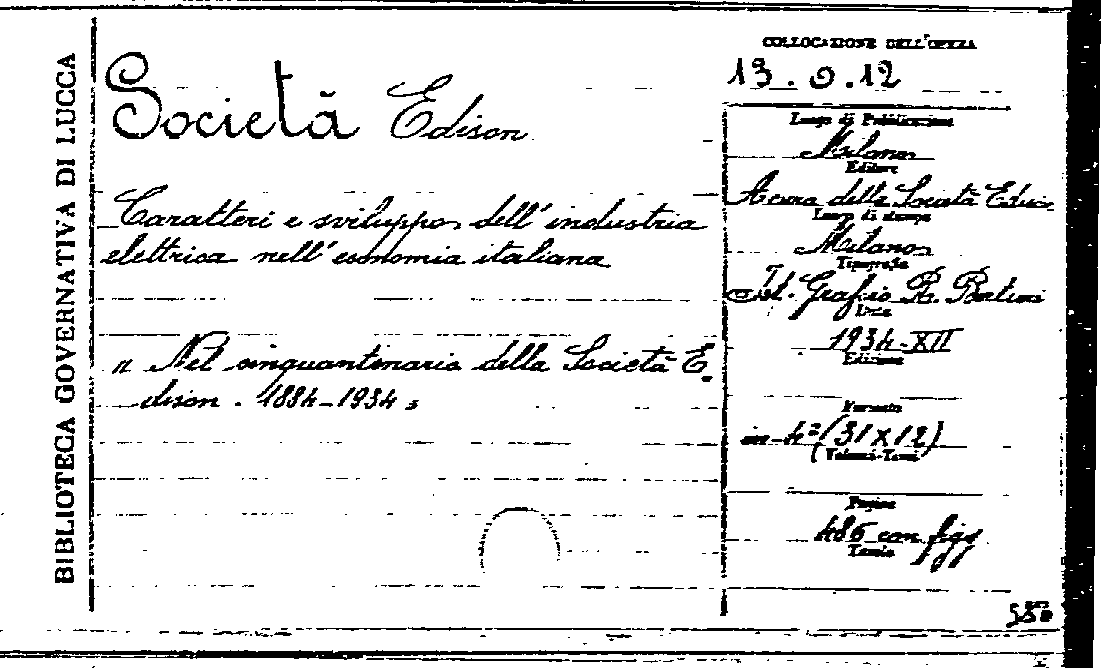 BIBLIOTECA GOVERNATIVA DI LUCCA
Società Edison
Caratteri e sviluppo dell'industria
elettrica nell'economia italiana
" Nel cinquantenario della Società E
dison. 1884-1934 "
COLLOCAZIONE DELL'OPERA
13.0.12
Luogo di Pubblicazione
Milano
Editore
A cura della Società Edison
Luogo di stampa
Milano
Tipografia
Ist. Grafico B.
Data
1934-XII
Edizione
Formato
in-4° (31x12)
(Volumi-Tomi)
Pagine
486 con figg
Tavole